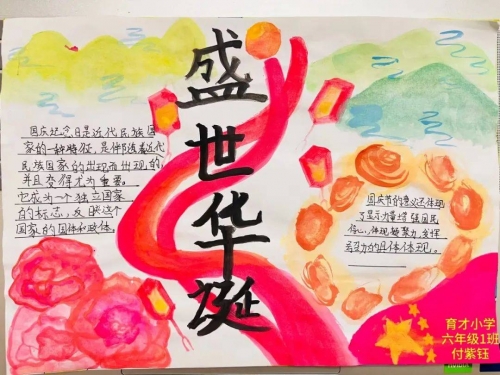 盛世华诞
国庆纪念日是近代民族国
家的一种特征,是伴随着近代
民族国家的出现而出现的,
并且变得尤为重要。
它成为一个独立国家
的标志,反映这个
国家的国体和政体。
国庆节的意义还体现
了显示力量增强国民
信心,体现凝聚力,发挥
号召力的具体体现。
育才小学
六年级1班
付紫钰